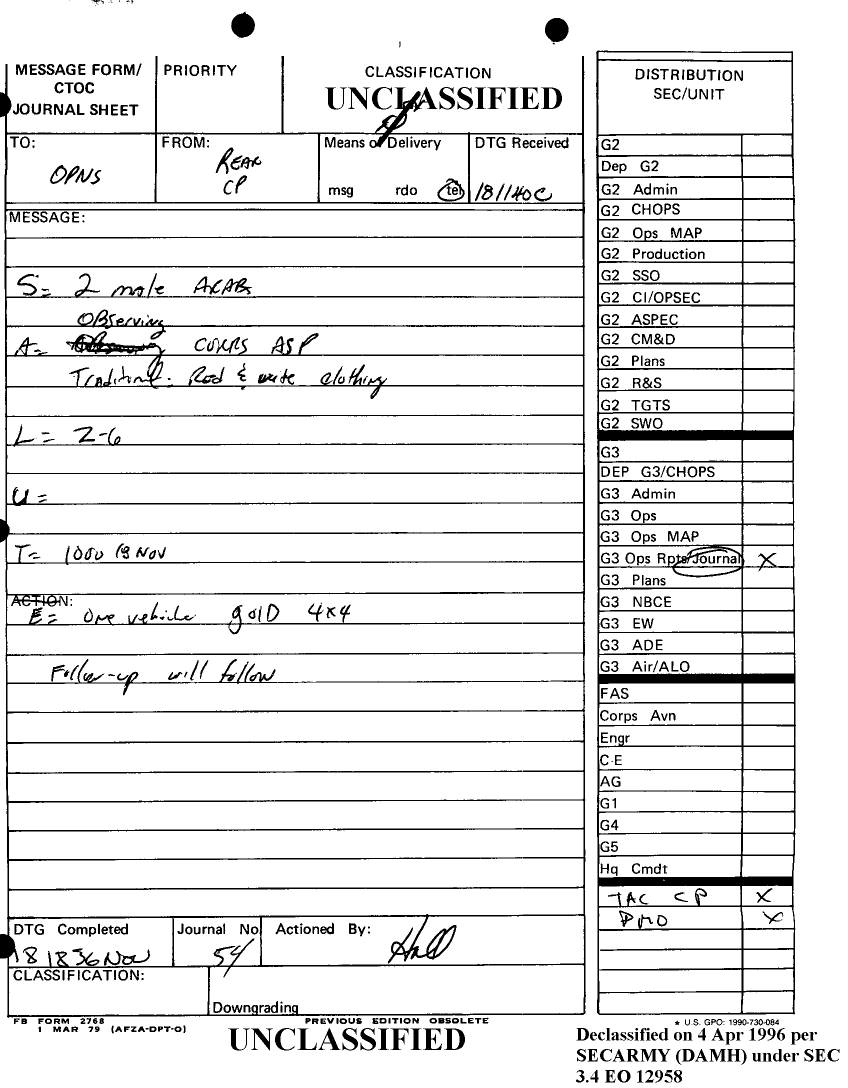 MESSAGE FORM/
CTOC
JOURNAL SHEET
PRIORITY
CLASSIFICATION
UNCLASSIFIED
TO:
OPNS
FROM:
REAR
CP
Means of Delivery
msg rdo tel
DTG Received
181140C
MESSAGE:
S= 2 male ARABS
OBserving
A= CORPS ASP
Traditional: Red & write clothing
L= Z-6
U=
T= 1000 18 Nov
ACTION:
E= One vehicle golD 4x4
Follow-up will follow
DTG Completed
181836Nov
Journal No
54
Actioned By:
Hall
CLASSIFICATION:
Downgrading
FB FORM 2768
1 MAR 79 (AFZA-DPT-O)
PREVIOUS EDITION OBSOLETE
UNCLASSIFIED
DISTRIBUTION
SEC/UNIT
G2
Dep G2
G2 Admin
G2 CHOPS
G2 Ops MAP
G2 Production
G2 SSO
G2 CI/OPSEC
G2 ASPEC
G2 CM&D
G2 Plans
G2 R&S
G2 TGTS
G2 SWO
G3
DEP G3/CHOPS
G3 Admin
G3 Ops
G3 Ops MAP
G3 Ops Rpts/Journal X
G3 Plans
G3 NBCE
G3 EW
G3 ADE
G3 Air/ALO
FAS
Corps Avn
Engr
C-E
AG
G1
G4
G5
Hq Cmdt
TAC CP X
PMO X
★ U.S. GPO: 1990-730-084
Declassified on 4 Apr 1996 per
SECARMY (DAMH) under SEC
3.4 EO 12958